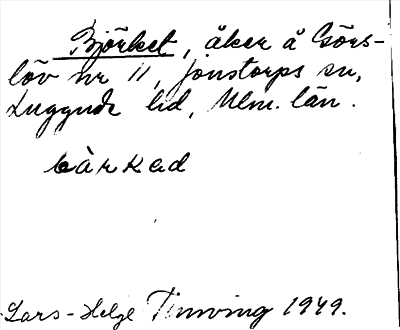 Björket, åker å Görs-
löv nr 11, Jonstorps sn,
Luggude hd, Mlm. län.
bàrkad
Lars-Helge Timving 1949.